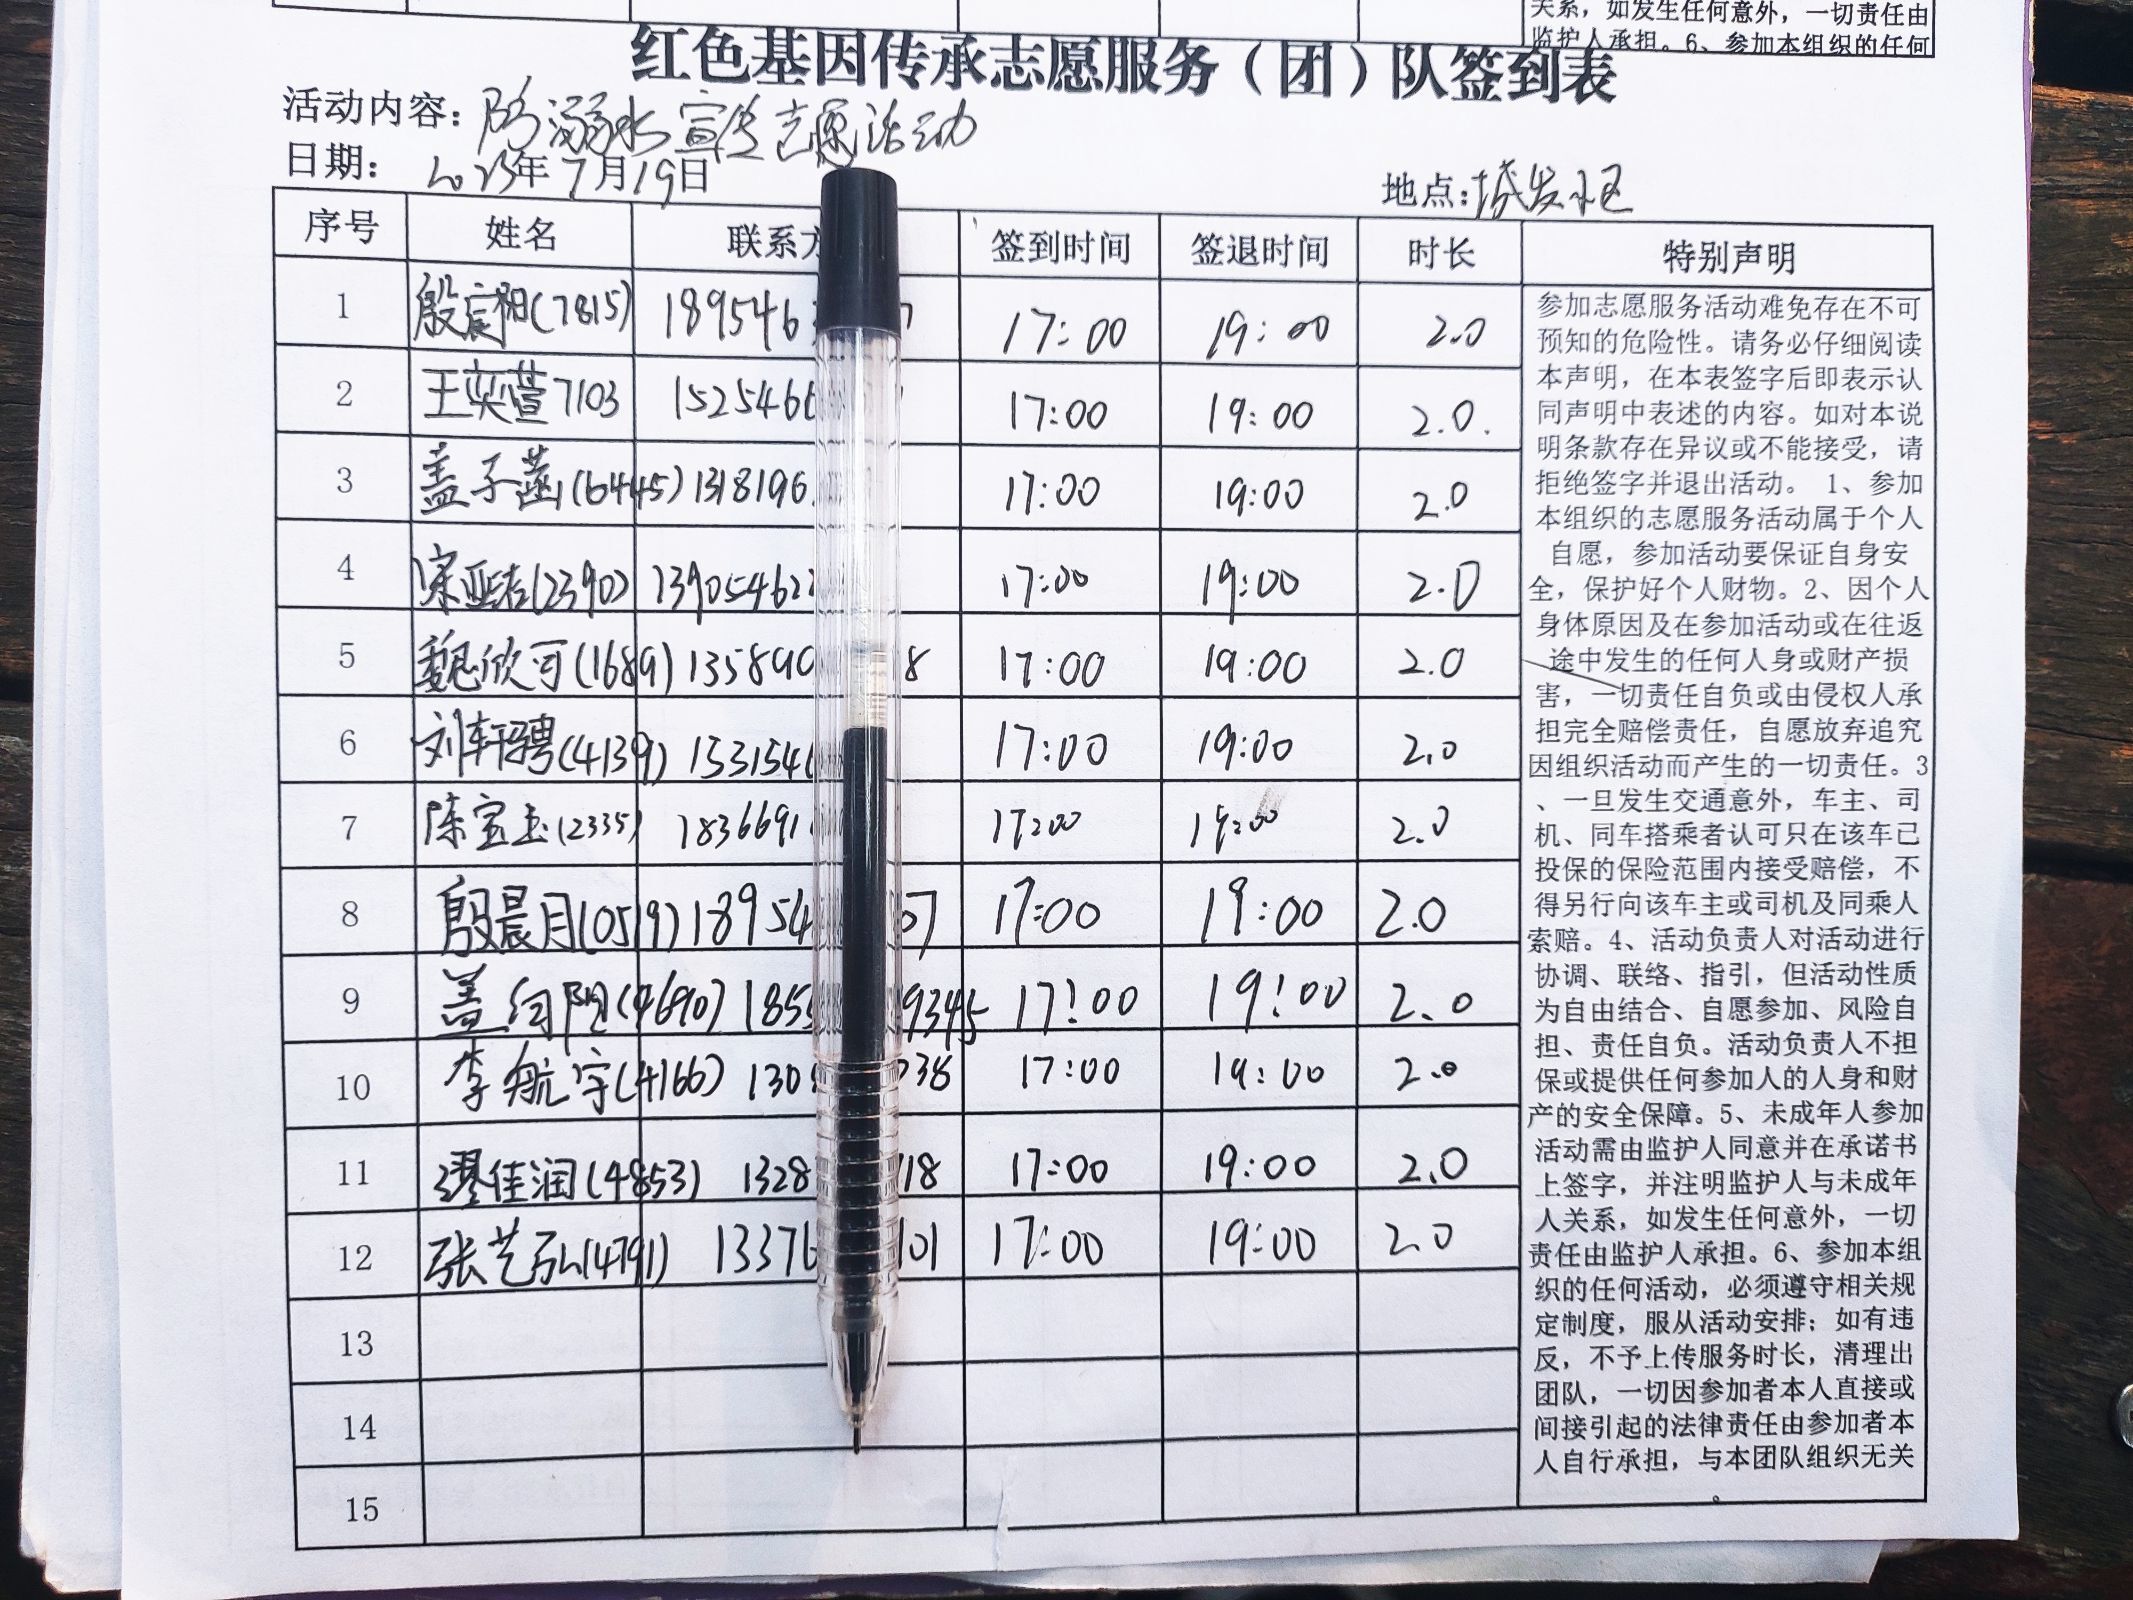 关系，如发生任何意外，一切责任由
监护人承担。6、参加本组织的任何
红色基因传承志愿服务（团）队签到表
活动内容：防溺水宣传志愿活动
日期：2023年7月19日
地点：城发小区
序号 姓名 联系方 签到时间 签退时间 时长 特别声明
1 殷宸阳(7815) 189546 7 17:00 19:00 2.0
2 王奕萱7103 1525466 17:00 19:00 2.0.
3 盖子菡(6445) 1318196 17:00 19:00 2.0
4 宋亚洁(2390) 13905462 17:00 19:00 2.0
5 魏欣可(1689) 135890 8 17:00 19:00 2.0
6 刘轩骋(4139) 1531546 17:00 19:00 2.0
7 陈宝玉(2335) 1836691 17:00 19:00 2.0
8 殷晨月(0519) 18954 07 17:00 19:00 2.0
9 盖向阳(4690) 1855 9345 17:00 19:00 2.0
10 李航宇(4166) 130 038 17:00 19:00 2.0
11 谬佳润(4853) 1328 18 17:00 19:00 2.0
12 张艺弘(4791) 1337 101 17:00 19:00 2.0
13
14
15
参加志愿服务活动难免存在不可
预知的危险性。请务必仔细阅读
本声明，在本表签字后即表示认
同声明中表述的内容。如对本说
明条款存在异议或不能接受，请
拒绝签字并退出活动。 1、参加
本组织的志愿服务活动属于个人
自愿，参加活动要保证自身安
全，保护好个人财物。2、因个人
身体原因及在参加活动或在往返
途中发生的任何人身或财产损
害，一切责任自负或由侵权人承
担完全赔偿责任，自愿放弃追究
因组织活动而产生的一切责任。3
、一旦发生交通意外，车主、司
机、同车搭乘者认可只在该车已
投保的保险范围内接受赔偿，不
得另行向该车主或司机及同乘人
索赔。4、活动负责人对活动进行
协调、联络、指引，但活动性质
为自由结合、自愿参加、风险自
担、责任自负。活动负责人不担
保或提供任何参加人的人身和财
产的安全保障。5、未成年人参加
活动需由监护人同意并在承诺书
上签字，并注明监护人与未成年
人关系，如发生任何意外，一切
责任由监护人承担。6、参加本组
织的任何活动，必须遵守相关规
定制度，服从活动安排；如有违
反，不予上传服务时长，清理出
团队，一切因参加者本人直接或
间接引起的法律责任由参加者本
人自行承担，与本团队组织无关
。